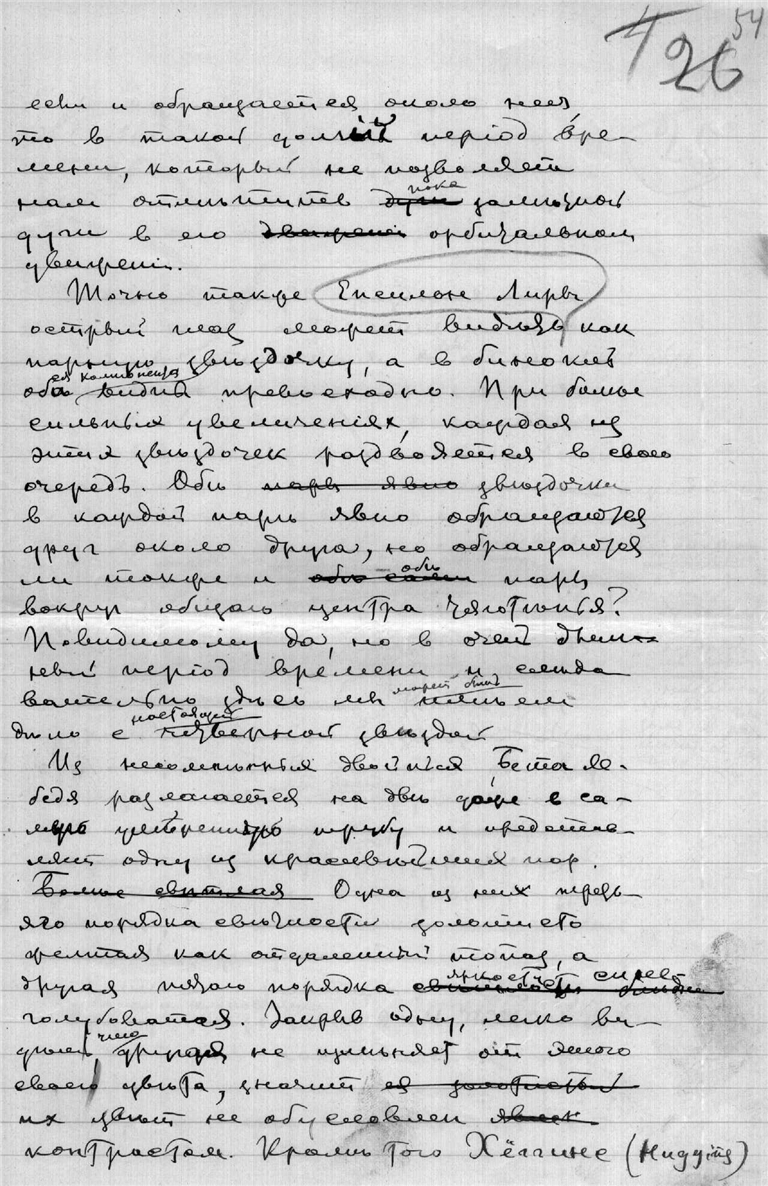 54
26
если и обращается около нея
то в такой долгий період вре-
мени, который не позволяет
нам отмѣтить пока замѣтной
дуги в его движеніи орбитальном
движеніи.
Точно также Епсилонѣ Лиры
острый глаз может видѣть как
парную звѣздочку, а в бинокль
оба ея компонента видны превосходно. При болѣе
сильных увеличеніях, каждая из
этих звѣздочек раздвояется в свою
очередь. Обѣ пары явно звѣздочки
в каждой парѣ явно обращаются
друг около друга, но обращаются
ли также и обѣ пары
вокруг общаго центра тяготѣнія?
Повидимому да, но в очень длин-
ный період времени и слѣдо
вательно здѣсь мы может быть имѣем
дѣло с настоящей четверной звѣздой
Из несомнѣнных двойных Бета Ле-
бедя разлагается на двѣ даже в са-
мую умѣренную трубу и представ-
ляет одну из красивѣйших пар.
Болѣе свѣтлая Одна из них треть-
яго порядка свѣтности золотисто
желтая как отдаленный топаз, а
другая пятаго порядка яркости сине
голубоватая. Закрыв одну, легко ви-
дим, что другая не измѣняет от этого
своего цвѣта, значит ея золотистый
их цвѣт не обусловлен
контрастом. Кромѣ того Хёггинс (Huggins)